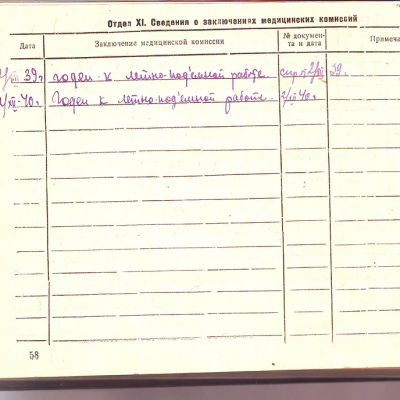 Отдел XI. Сведения о заключениях медицинских комиссий
Дата Заключение медицинской комиссии № докумен- та и дата Примеча
39г. годен к летно-под'емной работе. 39г.
40г. Годен к летно-под'емной работе. 40г.
58